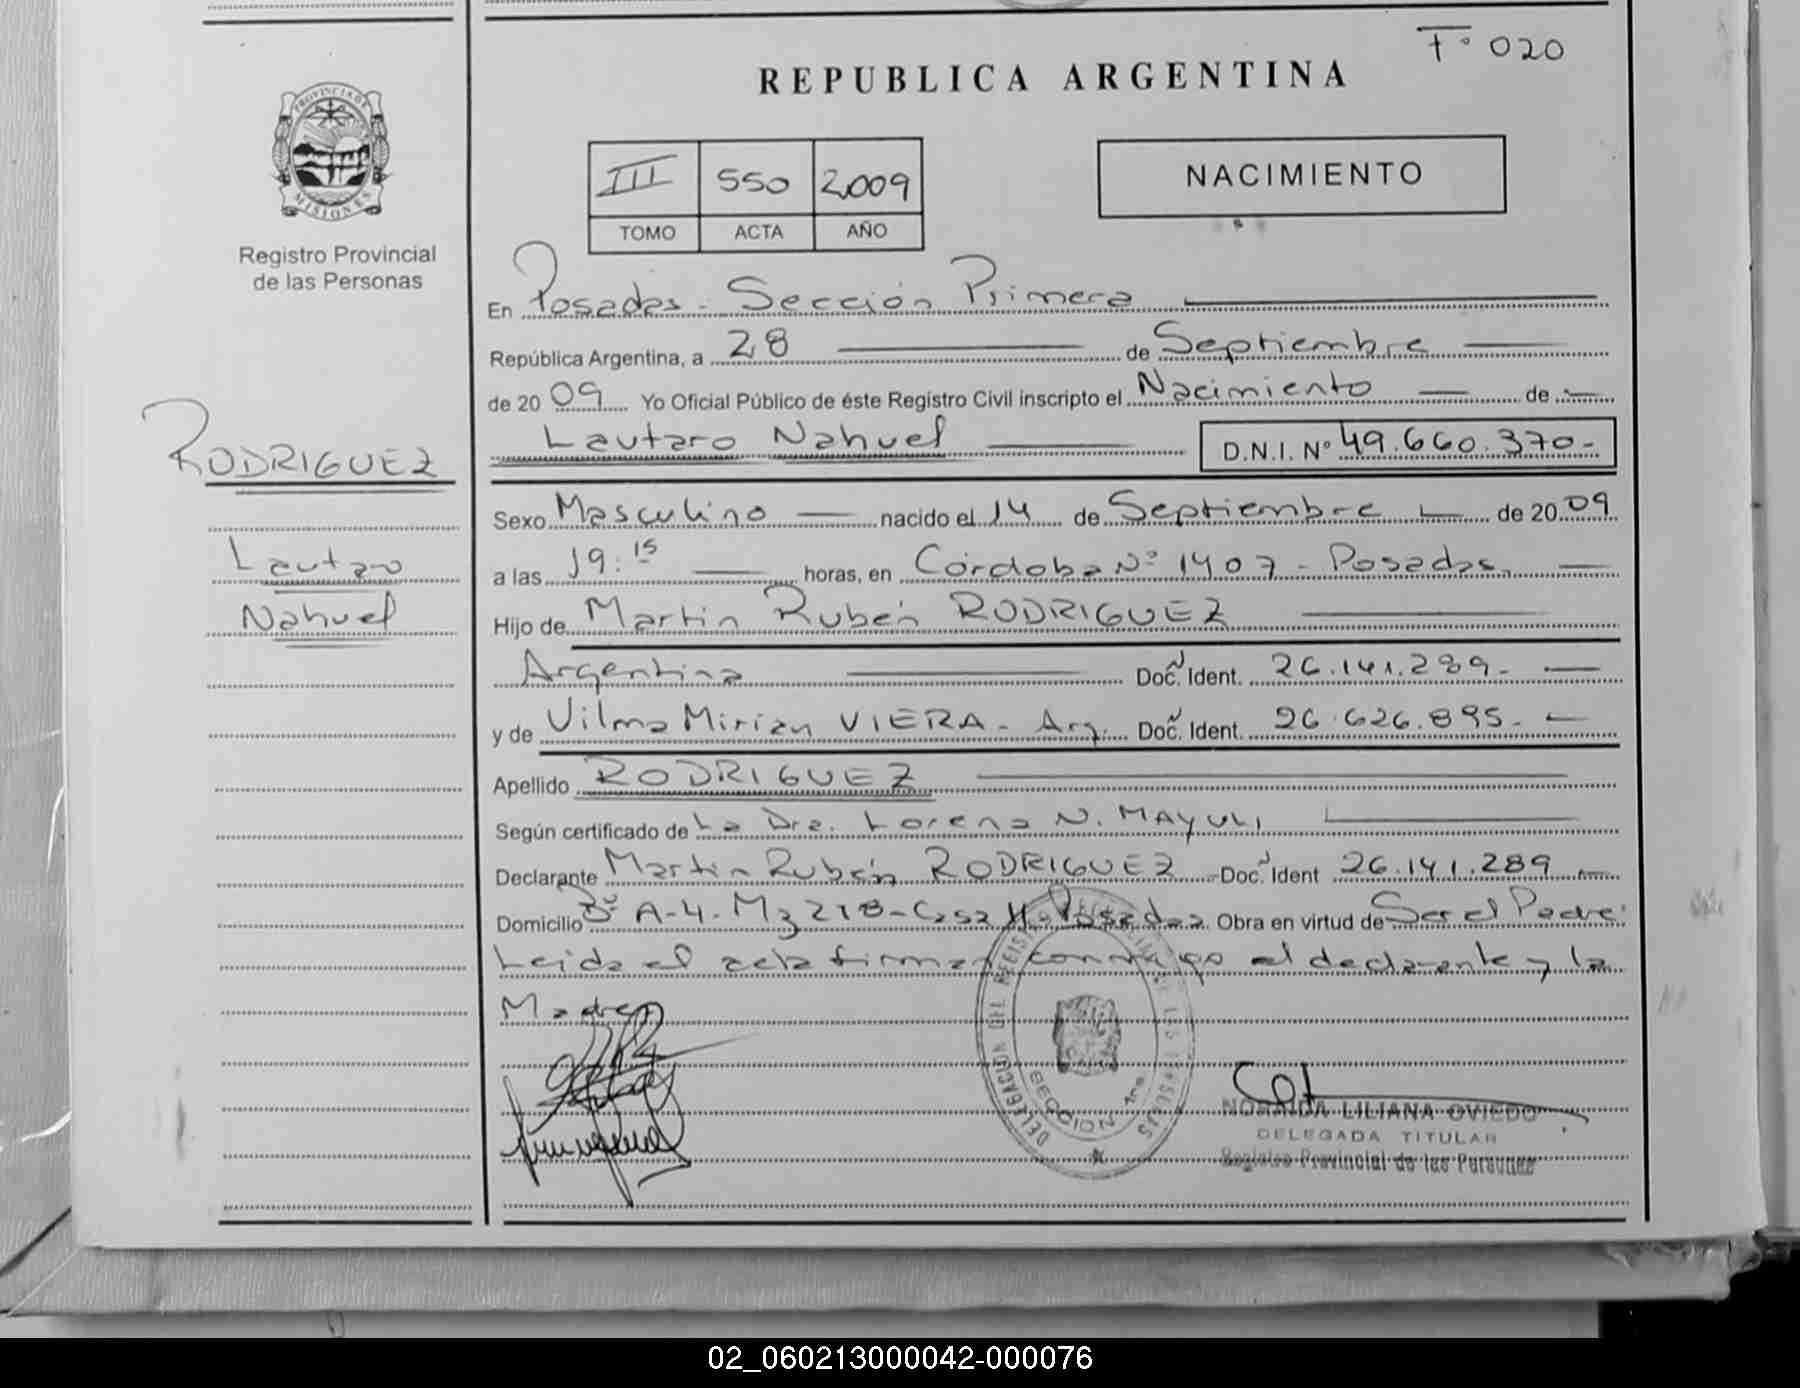 Fº 020
REPUBLICA ARGENTINA
PROVINCIA DE
MISIONES
Registro Provincial
de las Personas
III 550 2009
TOMO ACTA AÑO
NACIMIENTO
En Posadas - Sección Primera
República Argentina, a 28 de Septiembre
de 20 09 Yo Oficial Público de éste Registro Civil inscripto el Nacimiento de
Lautaro Nahuel D.N.I. Nº 49.660.370-
RODRIGUEZ
Lautaro
Nahuel
Sexo Masculino nacido el 14 de Septiembre de 20 09
a las 19:15 horas, en Córdoba Nº 1407 - Posadas
Hijo de Martin Rubén RODRIGUEZ
Argentina Doc. Ident. 26.141.289-
y de Vilma Mirian VIERA - Arg. Doc. Ident. 26.626.895-
Apellido RODRIGUEZ
Según certificado de La Dra. Lorena N. MAYULI
Declarante Martin Rubén RODRIGUEZ Doc. Ident 26.141.289
Domicilio Bº A-4- Mz 218 - Casa Posadas Obra en virtud de Ser el Padre:
Leida el acta firman conmigo el declarante y la
Madre
DELEGACION DEL REGISTRO PROVINCIAL DE LAS PERSONAS
SECCION 1ra
NORAIDA LILIANA OVIEDO
DELEGADA TITULAR
Registro Provincial de las Personas
02_060213000042-000076